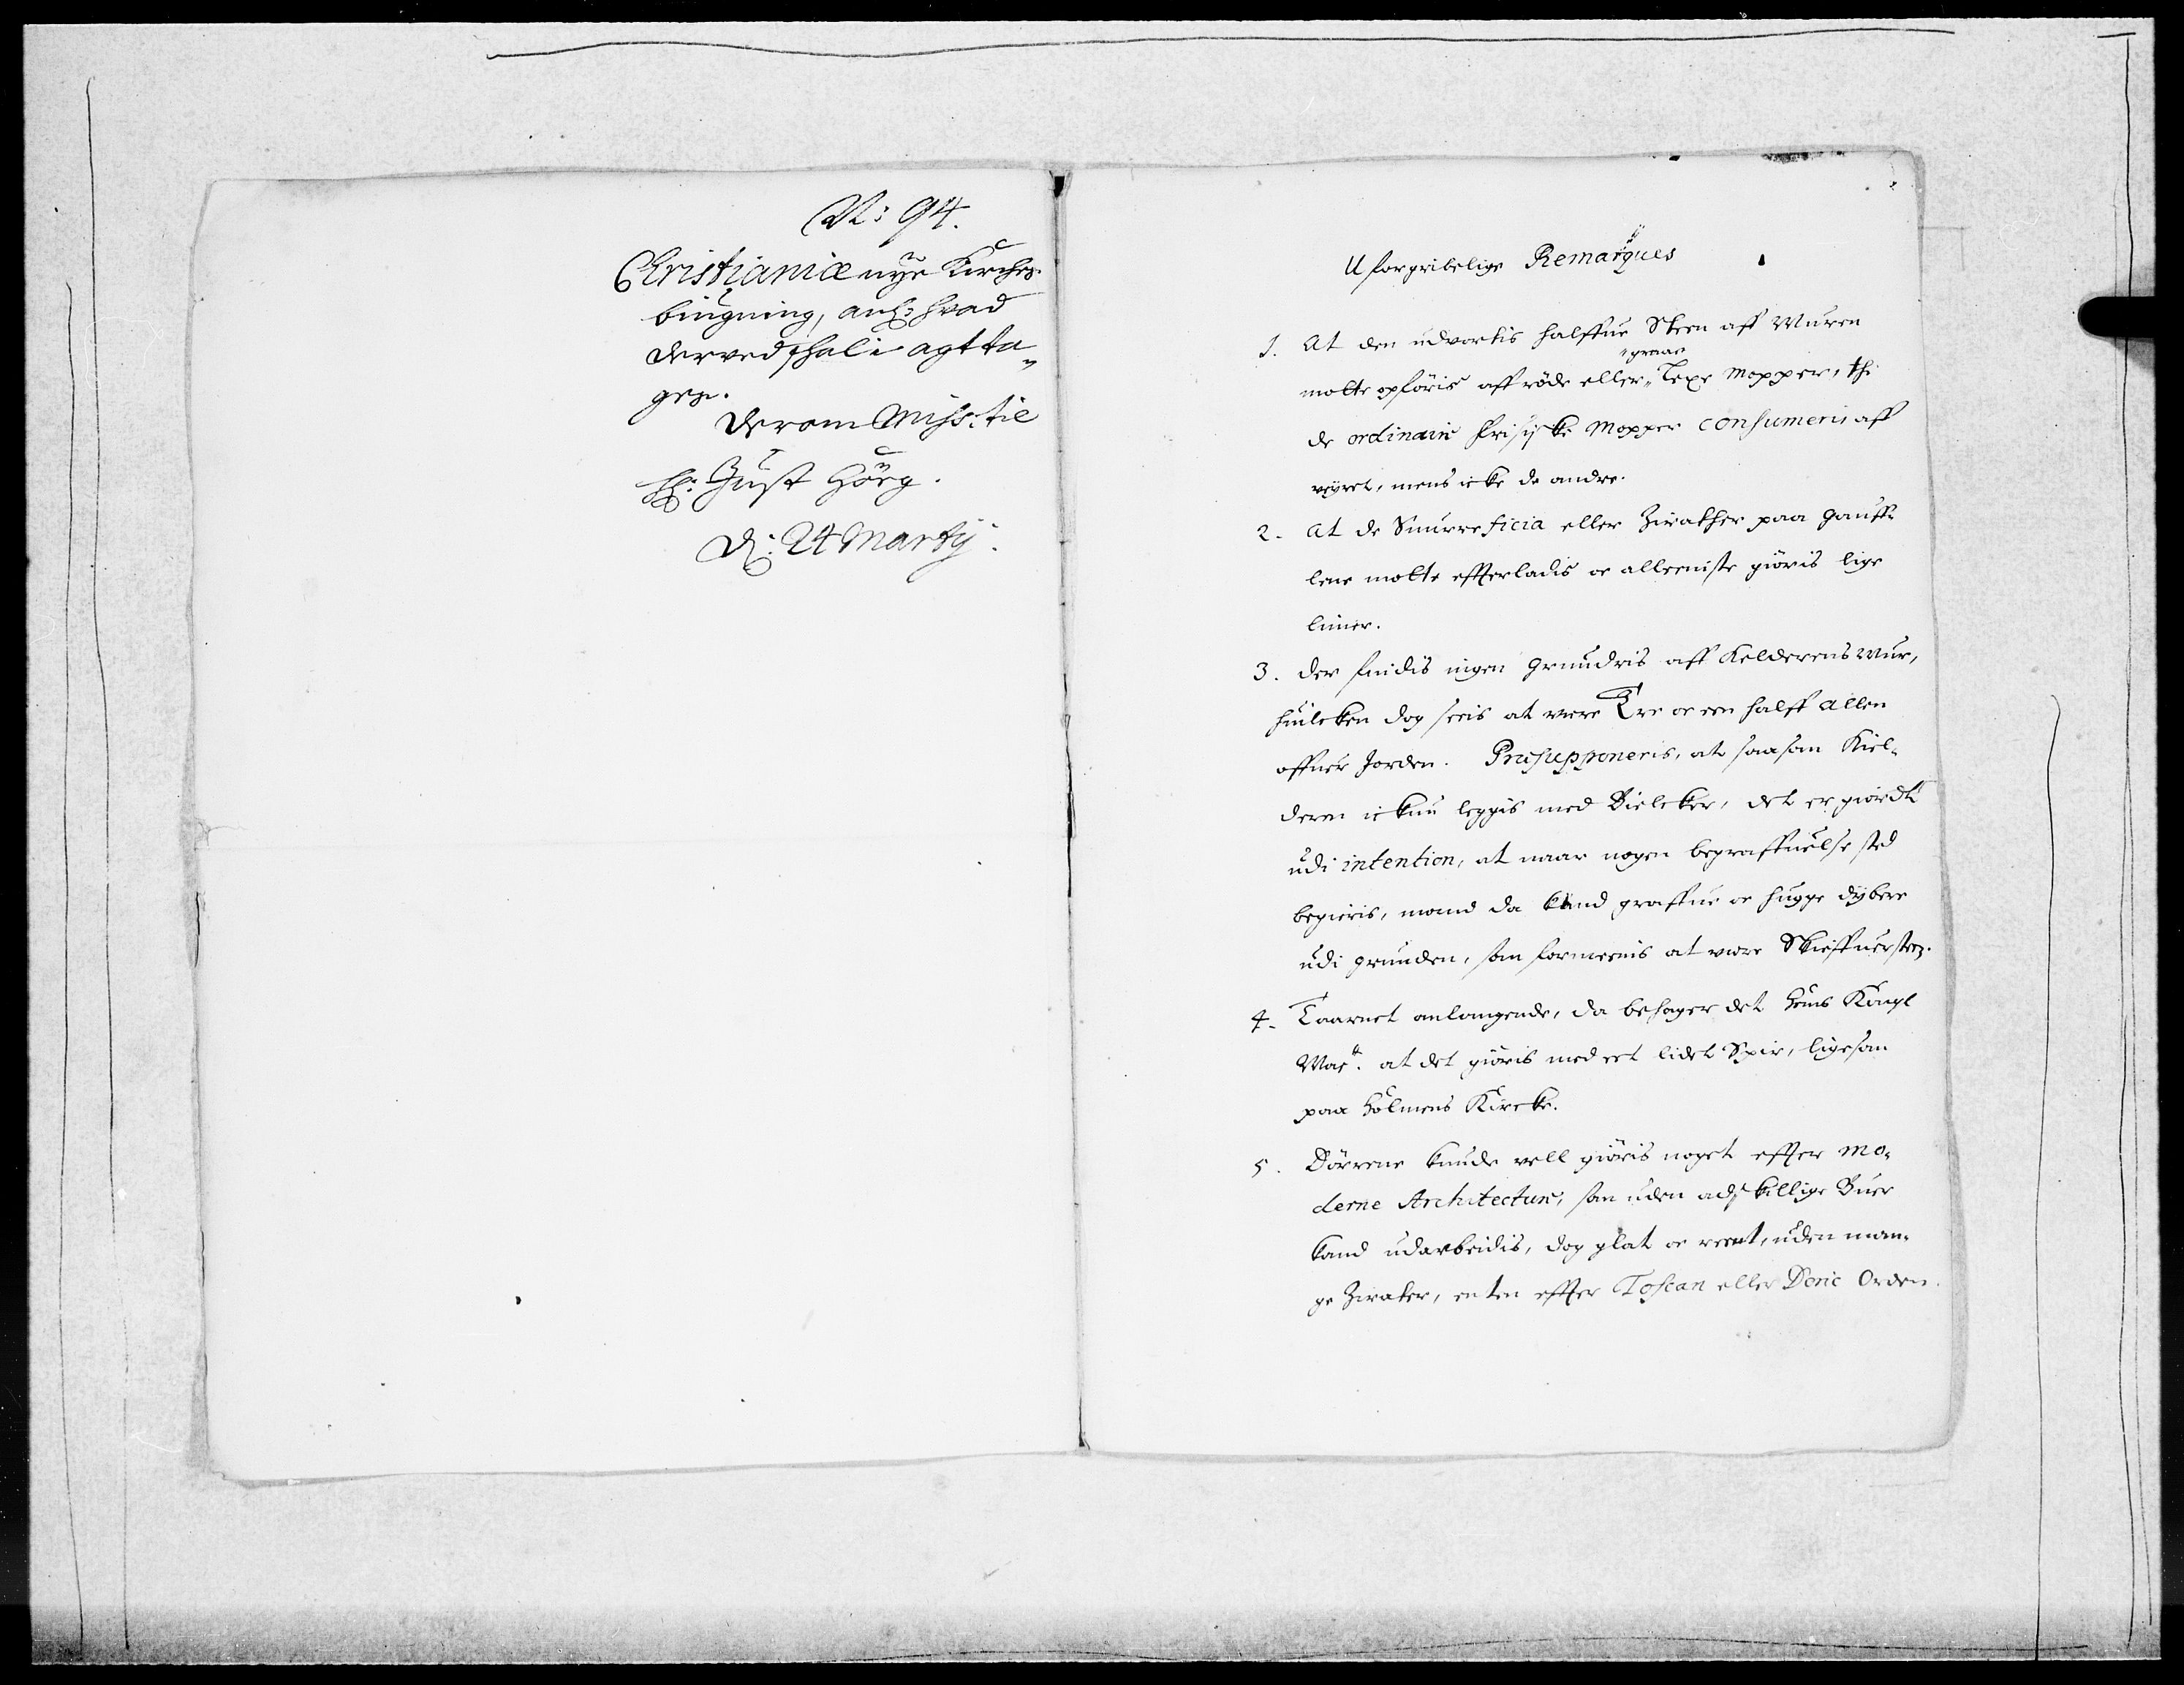 N: 94.
Christianiæ nye Kirches
bÿugning, anl: hvad
derved skal i agt ta-
gen.
Derom Miss: til
H: Gust Hörg.
D: 24 Martij.
Uforgribelige Remarques
1. At den udvortis halffue Steen aff Muren
graae
motte opföris aff röde eller Lexe Mopper, thi
de ordinaire frisiske Mopper consumeris aff
veyret, mens icke de andre.
2. At de Snurreficia eller Zirather paa gauff-
lene motte effterladis oc alleeniste giöris lige
linier.
3. Der findis ingen grundris aff Kelderens Muur,
huilcken dog seeis at vere Tre oc een halff allen
offuer Jorden. Præsupponeris, at saasom Kiel-
deren ickun leggis med Bielcker, det er giordt
udi intention, at naar nogen begraffuelse sted
begieris, mand da kand graffue oc hugge dybere
udi grunden, som formeenis at vere Skieffuersteen.
4. Taarnet anlangende, da behager det Hans Kongl
Mayt. at det giöris med eet lidet Spir, ligesom
paa Holmens Kircke.
5. Dörrene kunde vell giöris noget effter mo-
derne Architectur, som uden adskillige Buer
kand udarbeidis, dog glat oc reent, uden man-
ge Zirater, enten effter Toscan eller Doric Orden.